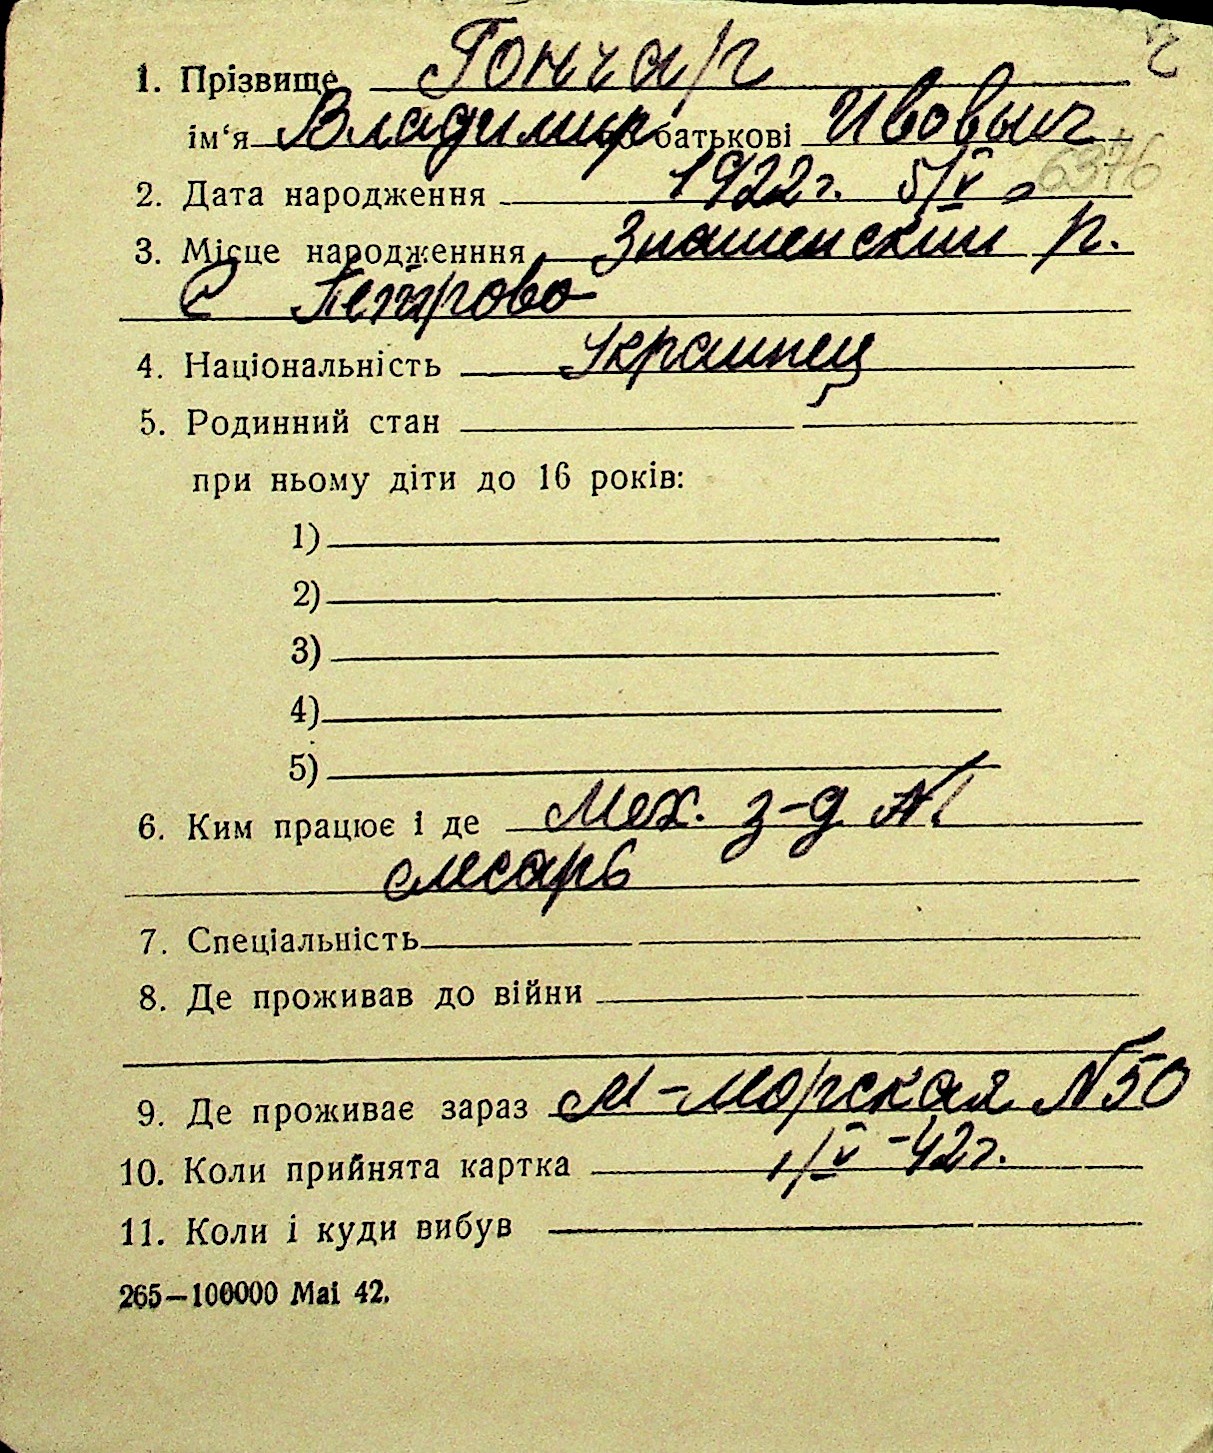 1. Прізвище Гончар
ім‘я Владимир по батькові Ивович
2. Дата народження 1922 г. 5/V
6376
3. Місце народженння Знаменский р.
С Петрово
4. Національність Украинец
5. Родинний стан
при ньому діти до 16 років:
1)
2)
3)
4)
5)
6. Ким працює і де Мех. з-д №1
слесарь
7. Спеціальність
8. Де проживав до війни
9. Де проживає зараз М-Морская №50
10. Коли прийнята картка 1/V-42г.
11. Коли і куди вибув
265—100000 Mai 42.